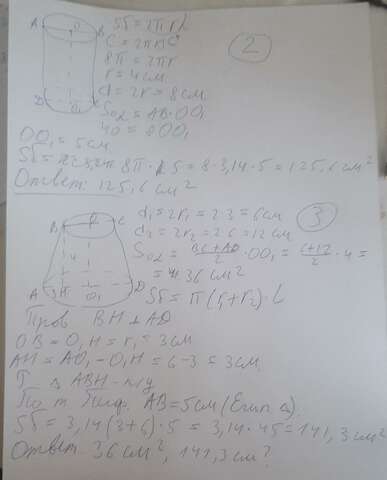 A O B Sб = 2πrL
C = 2πr
8π = 2πr
r = 4 см
d = 2r = 8 см
D O₁ C Sо2 = AB·OO₁
40 = 8OO₁
2
OO₁ = 5см
Sб = 8π· 5 = 8·3,14·5 = 125,6 см²
Ответ: 125,6 см²
d₁ = 2r₁ = 2·3 = 6см
3
B C d₂ = 2r₂ = 2·6 = 12 см
Sо2 = BC+AD/2 · OO₁ = 6+12/2 · 4 =
4
= 36 см²
A 3 H O₁ D
Sб = π(r₁+r₂)·L
Пров BH ⊥ AD
OB = O₁H = r₁ = 3см
AH = AO₁ - O₁H = 6-3 = 3см.
ABH - п/у
По т. Пиф. AB = 5см (Египт. )
Sб = 3,14(3+6)·5 = 3,14·45 = 141,3 см²
Ответ 36 см², 141,3 см²